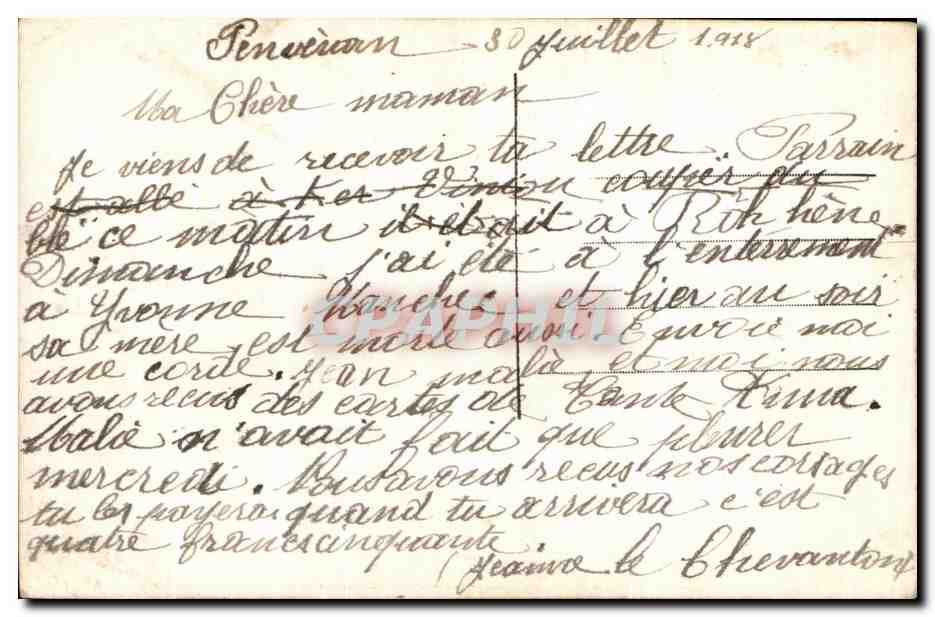 Penvénan 30 juillet 1918
Ma Chère maman
Je viens de recevoir ta lettre. Parrain
est allé à Ker couper du
blé ce matin il était à
Dimanche j'ai été à l'enterrement
à Yvonne et hier au soir
sa mère est morte aussi. Envoie moi
une carte. Jean malo et moi nous
avons recus des cartes de Tante Anna.
Malo n'avait fait que pleurer
mercredi. Nous avons recus nos corsages
tu les payera quand tu arrivera c'est
quatre francs cinquante.
Jeanne le Chevanton
CPAPHIL